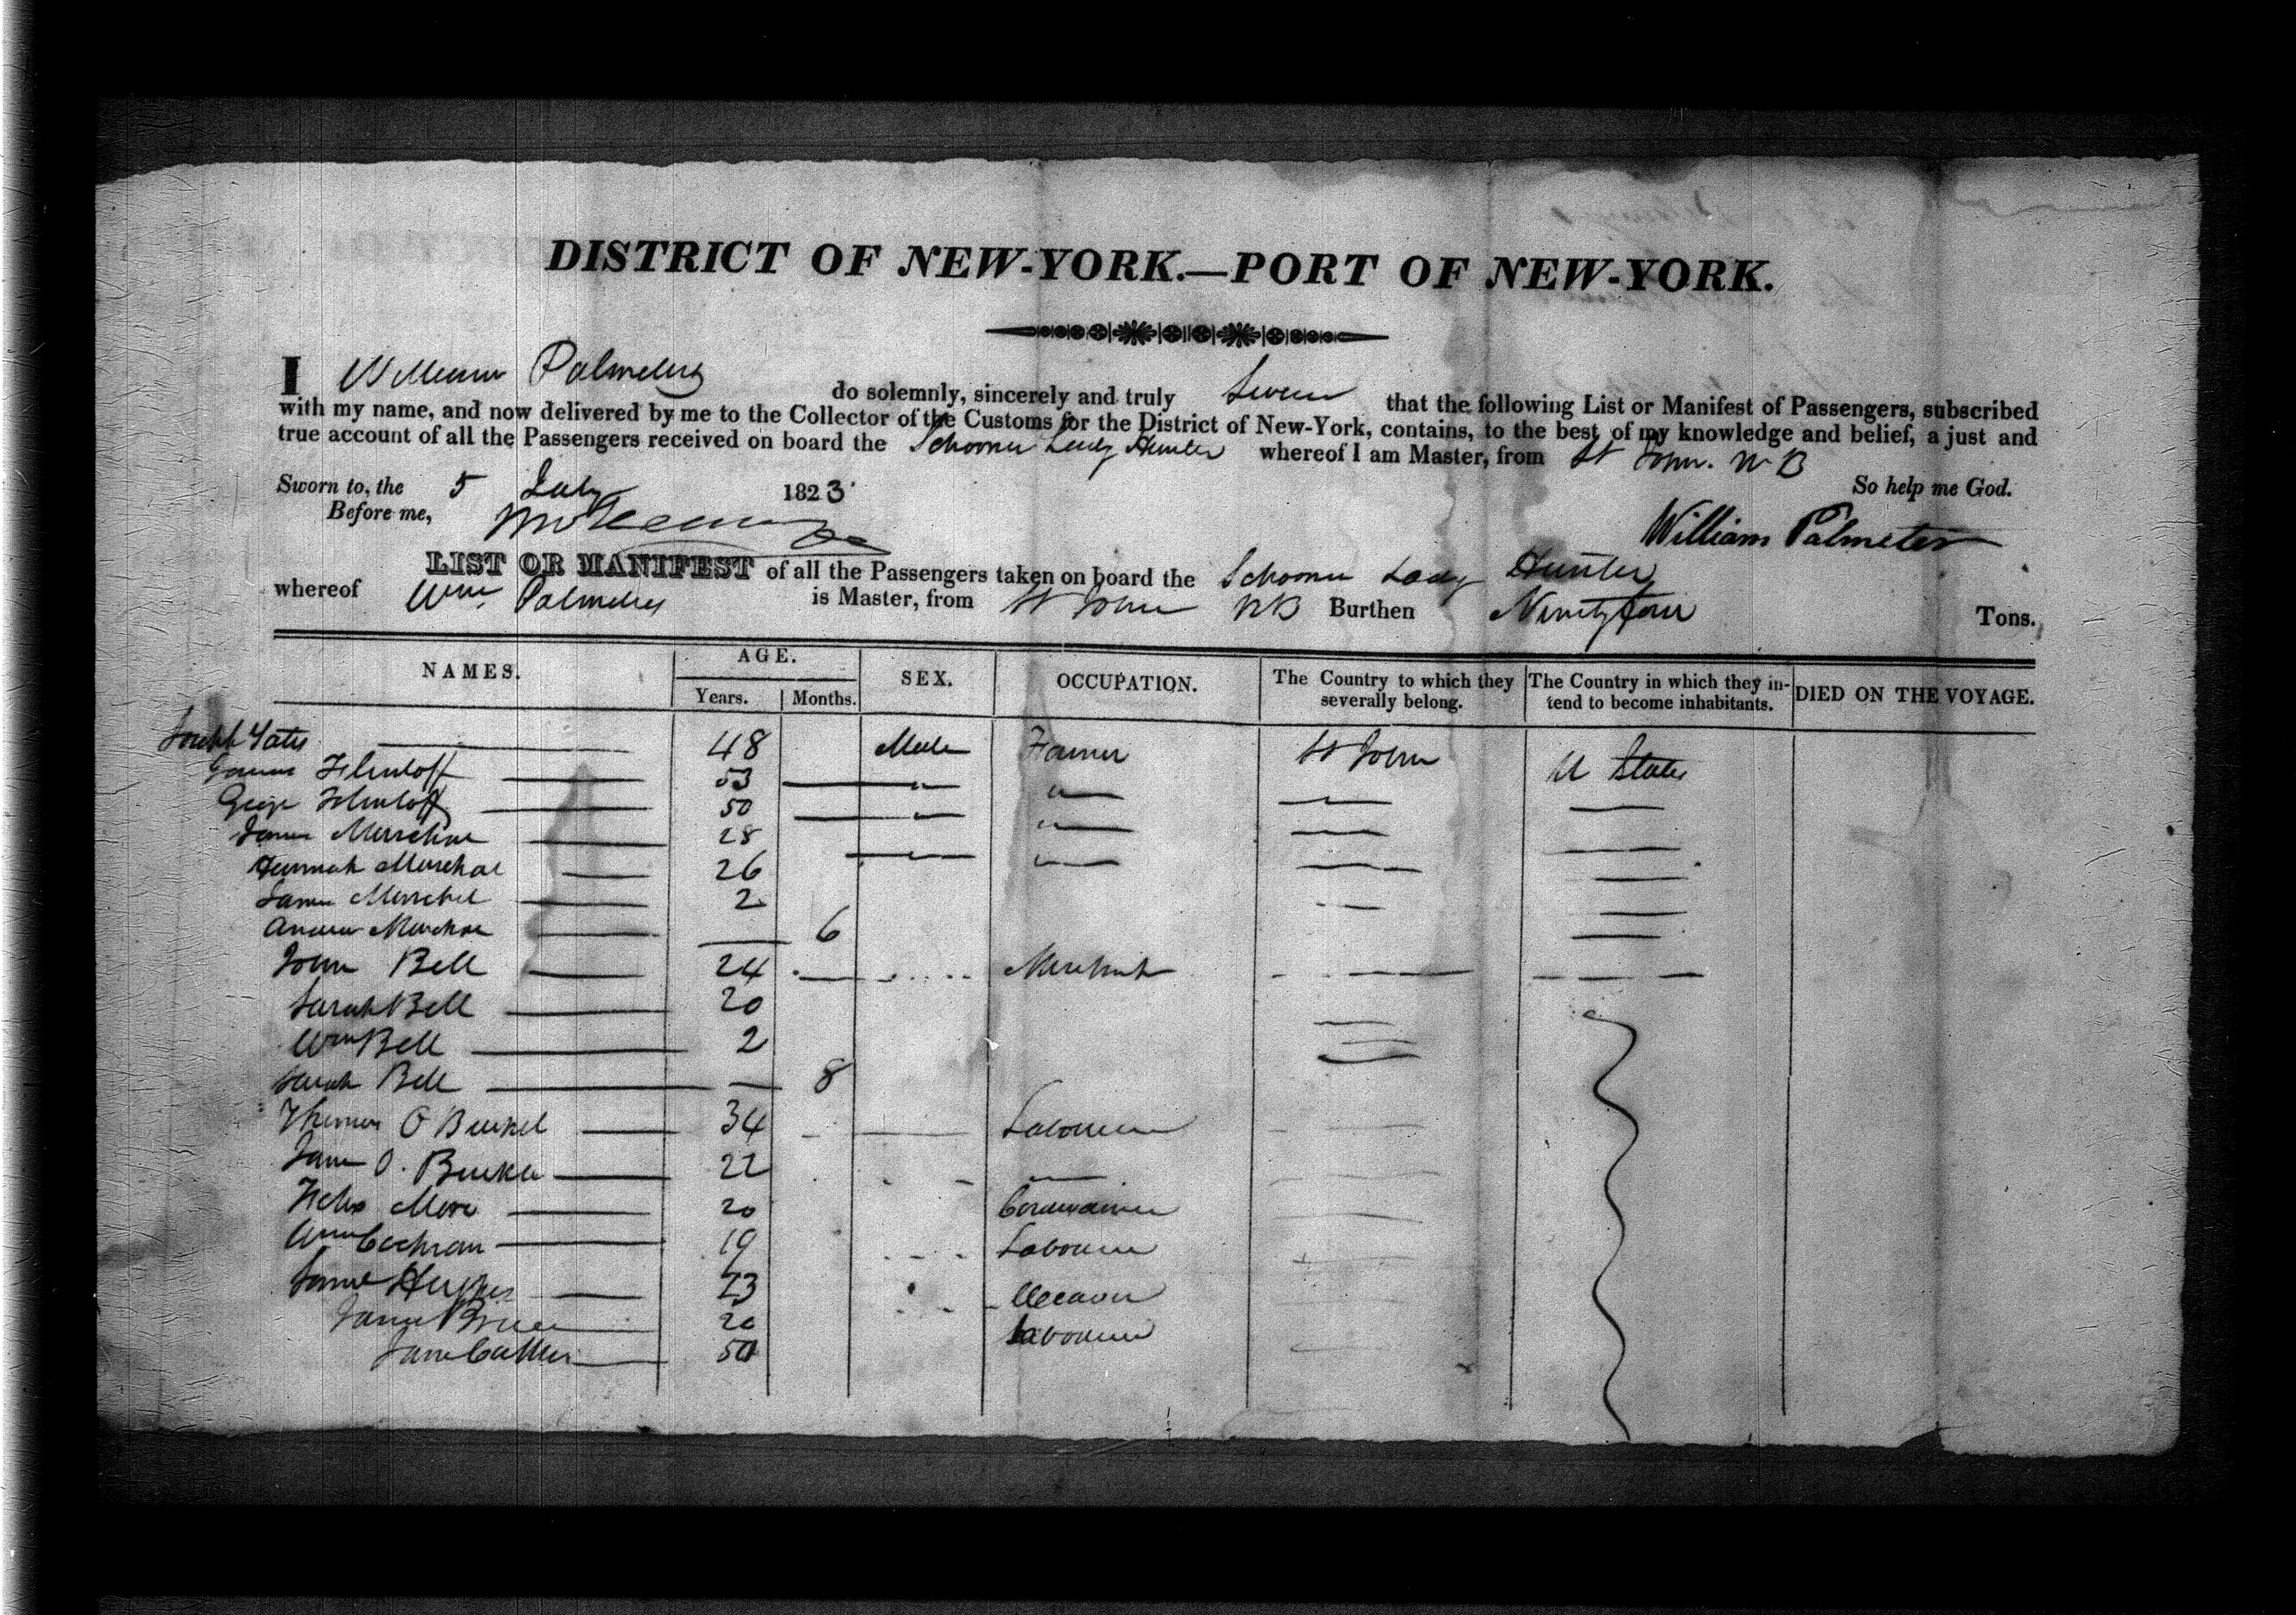 DISTRICT OF NEW-YORK.—PORT OF NEW-YORK.
I William Palmeter do solemnly, sincerely and truly Swear that the following List or Manifest of Passengers, subscribed
with my name, and now delivered by me to the Collector of the Customs for the District of New-York, contains, to the best of my knowledge and belief, a just and
true account of all the Passengers received on board the Schooner Lady Hunter whereof I am Master, from St John. N B
Sworn to, the 5 July 1823 So help me God.
Before me,
William Palmeter
LIST OR MANIFEST of all the Passengers taken on board the Schooner Lady Hunter
whereof Wm Palmeter is Master, from St John NB Burthen Ninety four Tons.
NAMES. AGE. SEX. OCCUPATION. The Country to which they severally belong. The Country in which they intend to become inhabitants. DIED ON THE VOYAGE.
Years. Months.
Joseph Yates 48 Male Farmer St John U States
James 53
George 50
James 28
Hannah 26
James 2
6
John Bell 24 Merchant
Sarah Bell 20
Wm Bell 2
Sarah Bell 8
Thomas O 34 Labourer
Jane O. 22
Felix More 20 Cordwainer
Wm Cochran 19 Labourer
Saml Hughes 23
20 Labourer
Jane 50